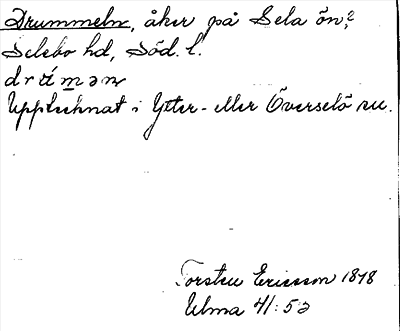 Drummeln, åker på Sela ön?
Selebo hd, Söd. l.
drúmən
Upptecknat i Ytter- eller Överselö sn.
Torsten Ericsson 1878
Ulma 41:52